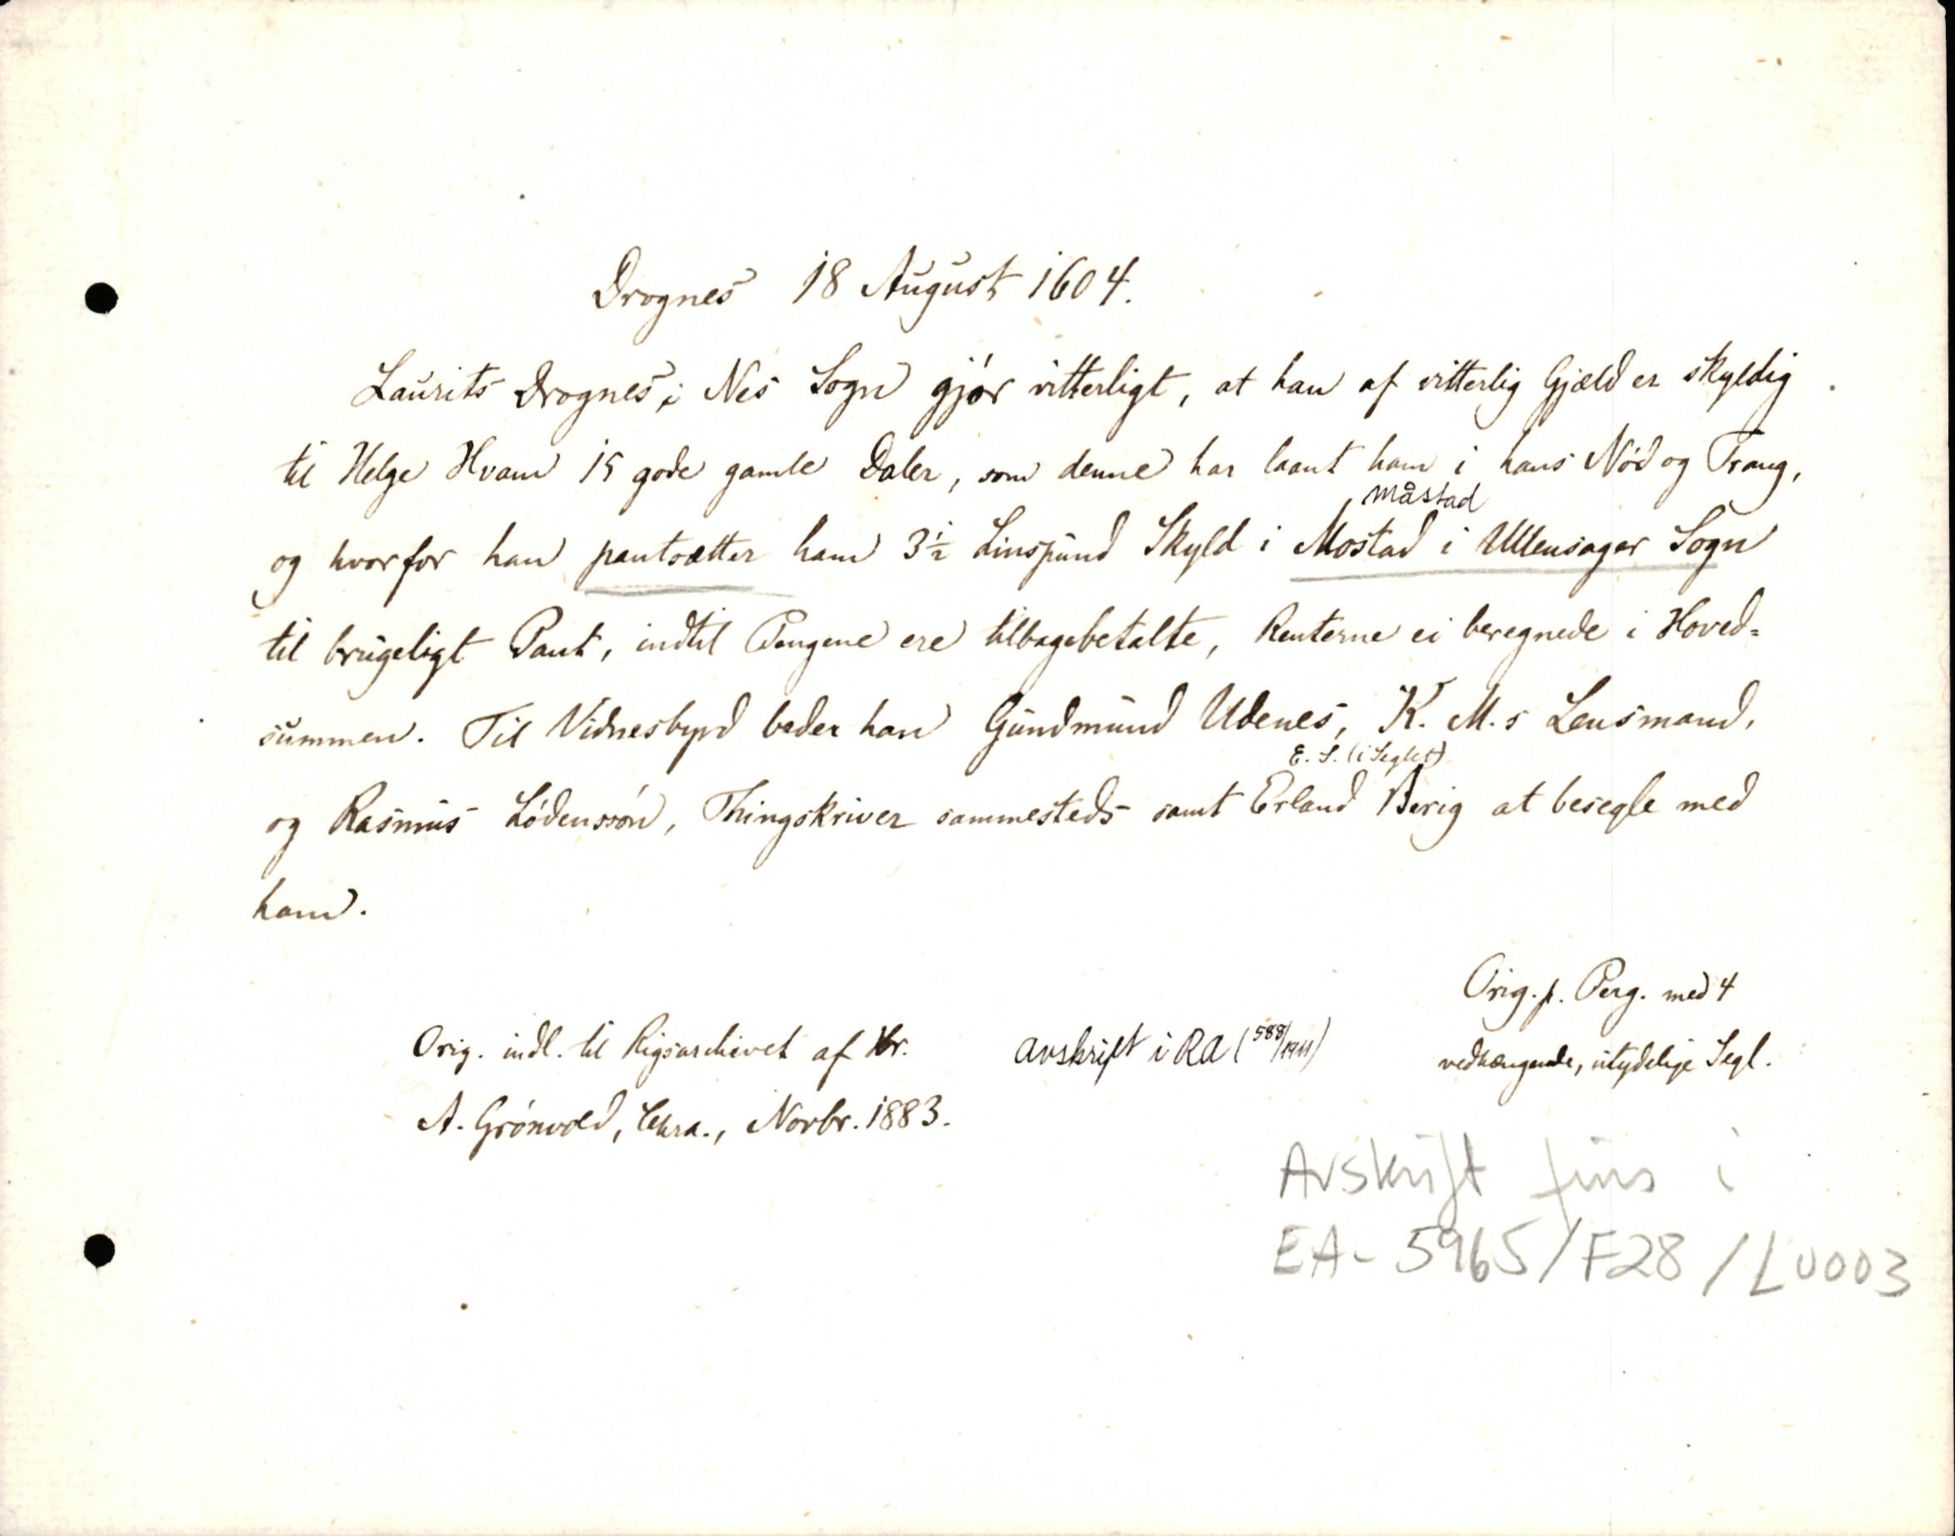 Drognes 18 August 1604.
Laurits Drognes, i Nes Sogn gjør vitterligt, at han af vitterlig Gjæld er skyldig
til Helge Hvam 15 gode gamle Daler, som denne har laant ham i hans Nød og Trang,
måstad
og hvorfor han pantsætter ham 3½ Linspund Skyld i Mostad i Ullensager Sogn
til brugeligt Pant, indtil Pengene ere tilbagebetalte, Renterne ei beregnede i Hoved=
summen. Til Vidnesbyrd beder han Gundmund Udenes, K. M.s Lensmand,
E. S. (i Seglet)
og Rasmus Lødenssøn, Thingskriver sammesteds samt Erland Berig at besegle med
ham.
Orig. p. Perg. med 4
vedhængende, utydelige Segl.
Orig. indl. til Rigsarchivet af Hr.
A. Grønvold, Chra., Novbr. 1883.
avskrift i RA (588/1911)
Avskrift fins i
EA-5965/F28/L0003